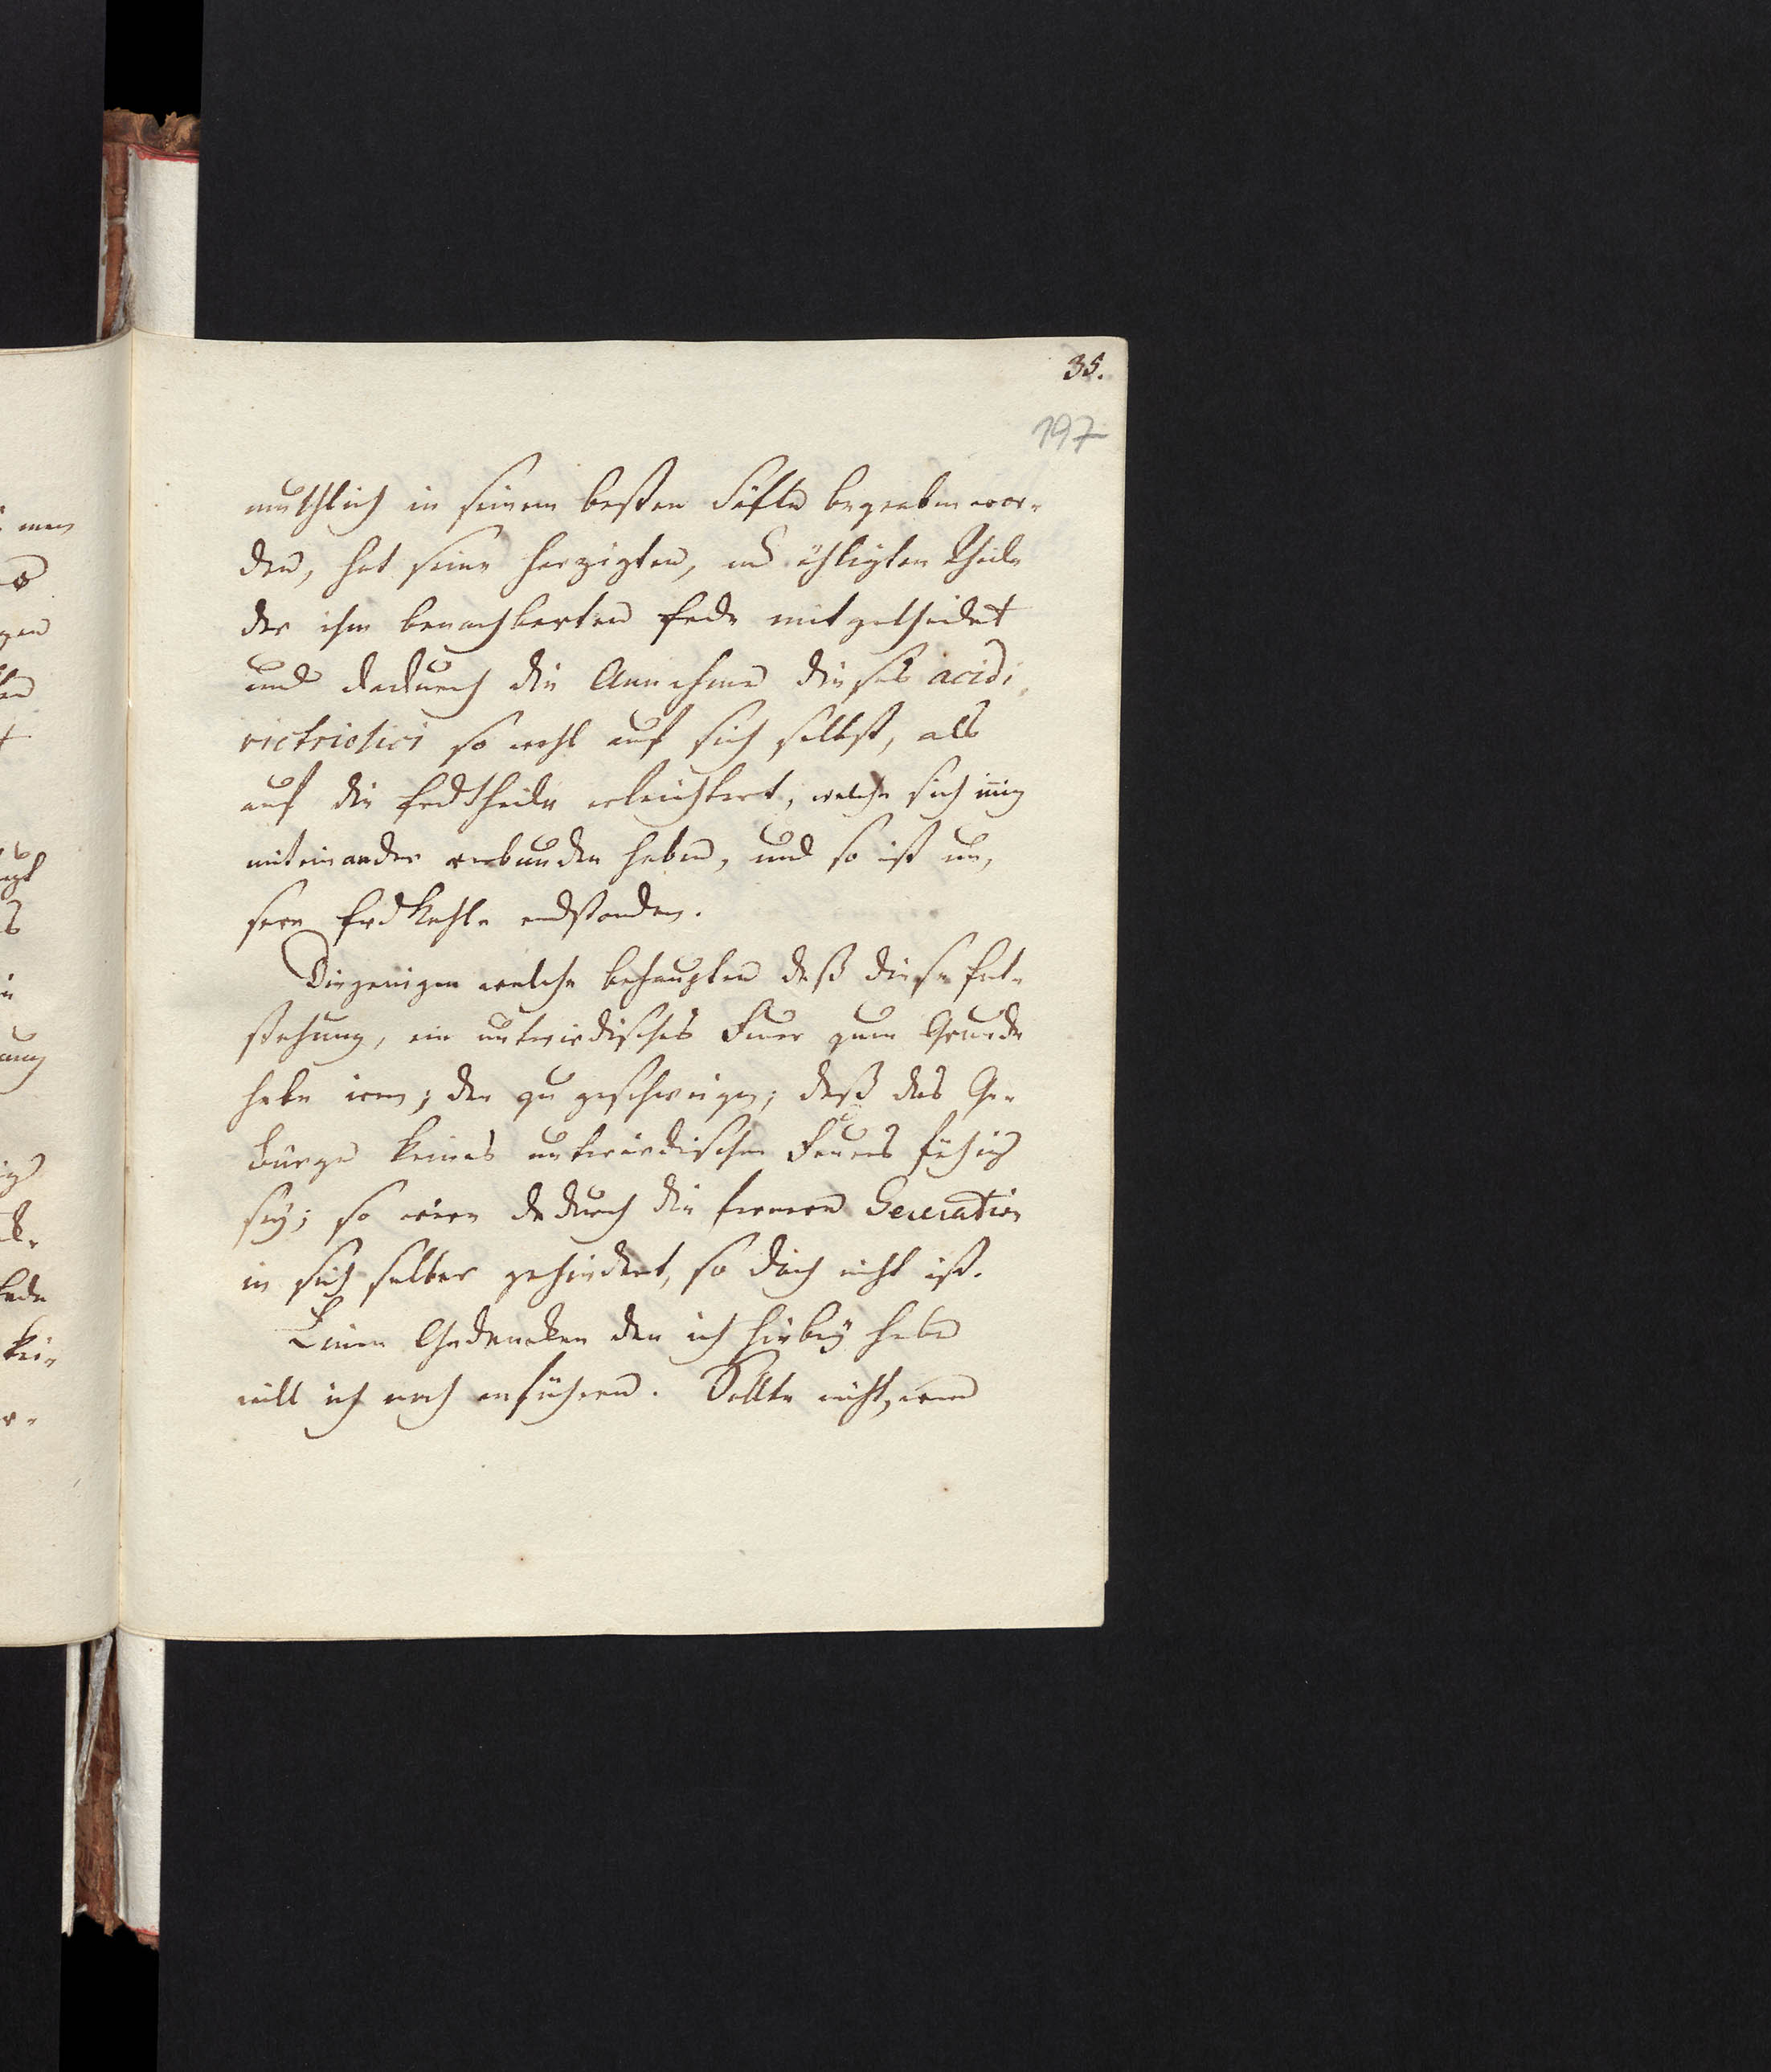 35.
197
muthlich in seinem besten Säfte begraben wor-
den, hat seine harzigten, und öhligten Theile
der ihm benachbarten Erde mit getheilet
und dadurch die Annahme dieses acidi
victriolici so wohl auf sich selbst, als
auf die Erdtheile erleichtert, welche sich innig
miteinander verbunden haben, und so ist un-
sere Erdkohle endstanden.
Diejenigen welche behaupten daß diese Ent-
stehung, ein unterirdisches Feuer zum Grunde
habe irren; den zu geschweigen; daß das Ge-
bürge keines unterirdischen Feuers fähig
sey; so wäre dadurch die fernere Generation
in sich selber gehindert, so doch nicht ist.
Einen Gedancken den ich hierbey habe
will ich noch anführen. Sollte nicht, wenn